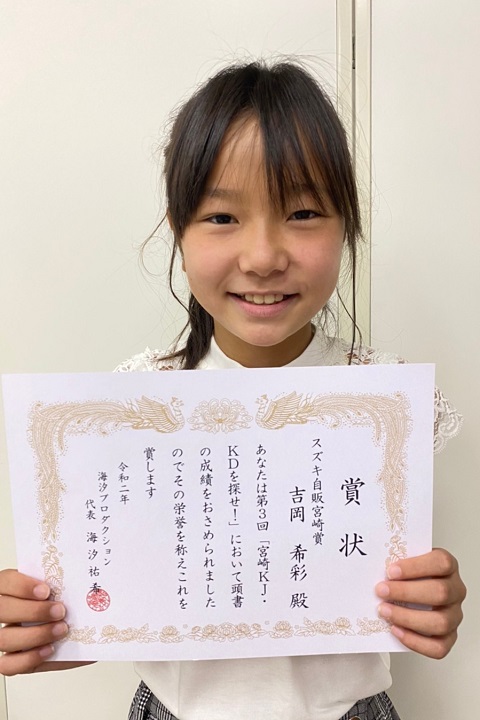 賞状
スズキ自販宮崎賞
吉岡 希彩 殿
あなたは第3回「宮崎KJ・
KDを探せ!」において頭書
の成績をおさめられました
のでその栄誉を称えこれを
賞します
令和二年
海汐プロダクション
代表 海汐祐希